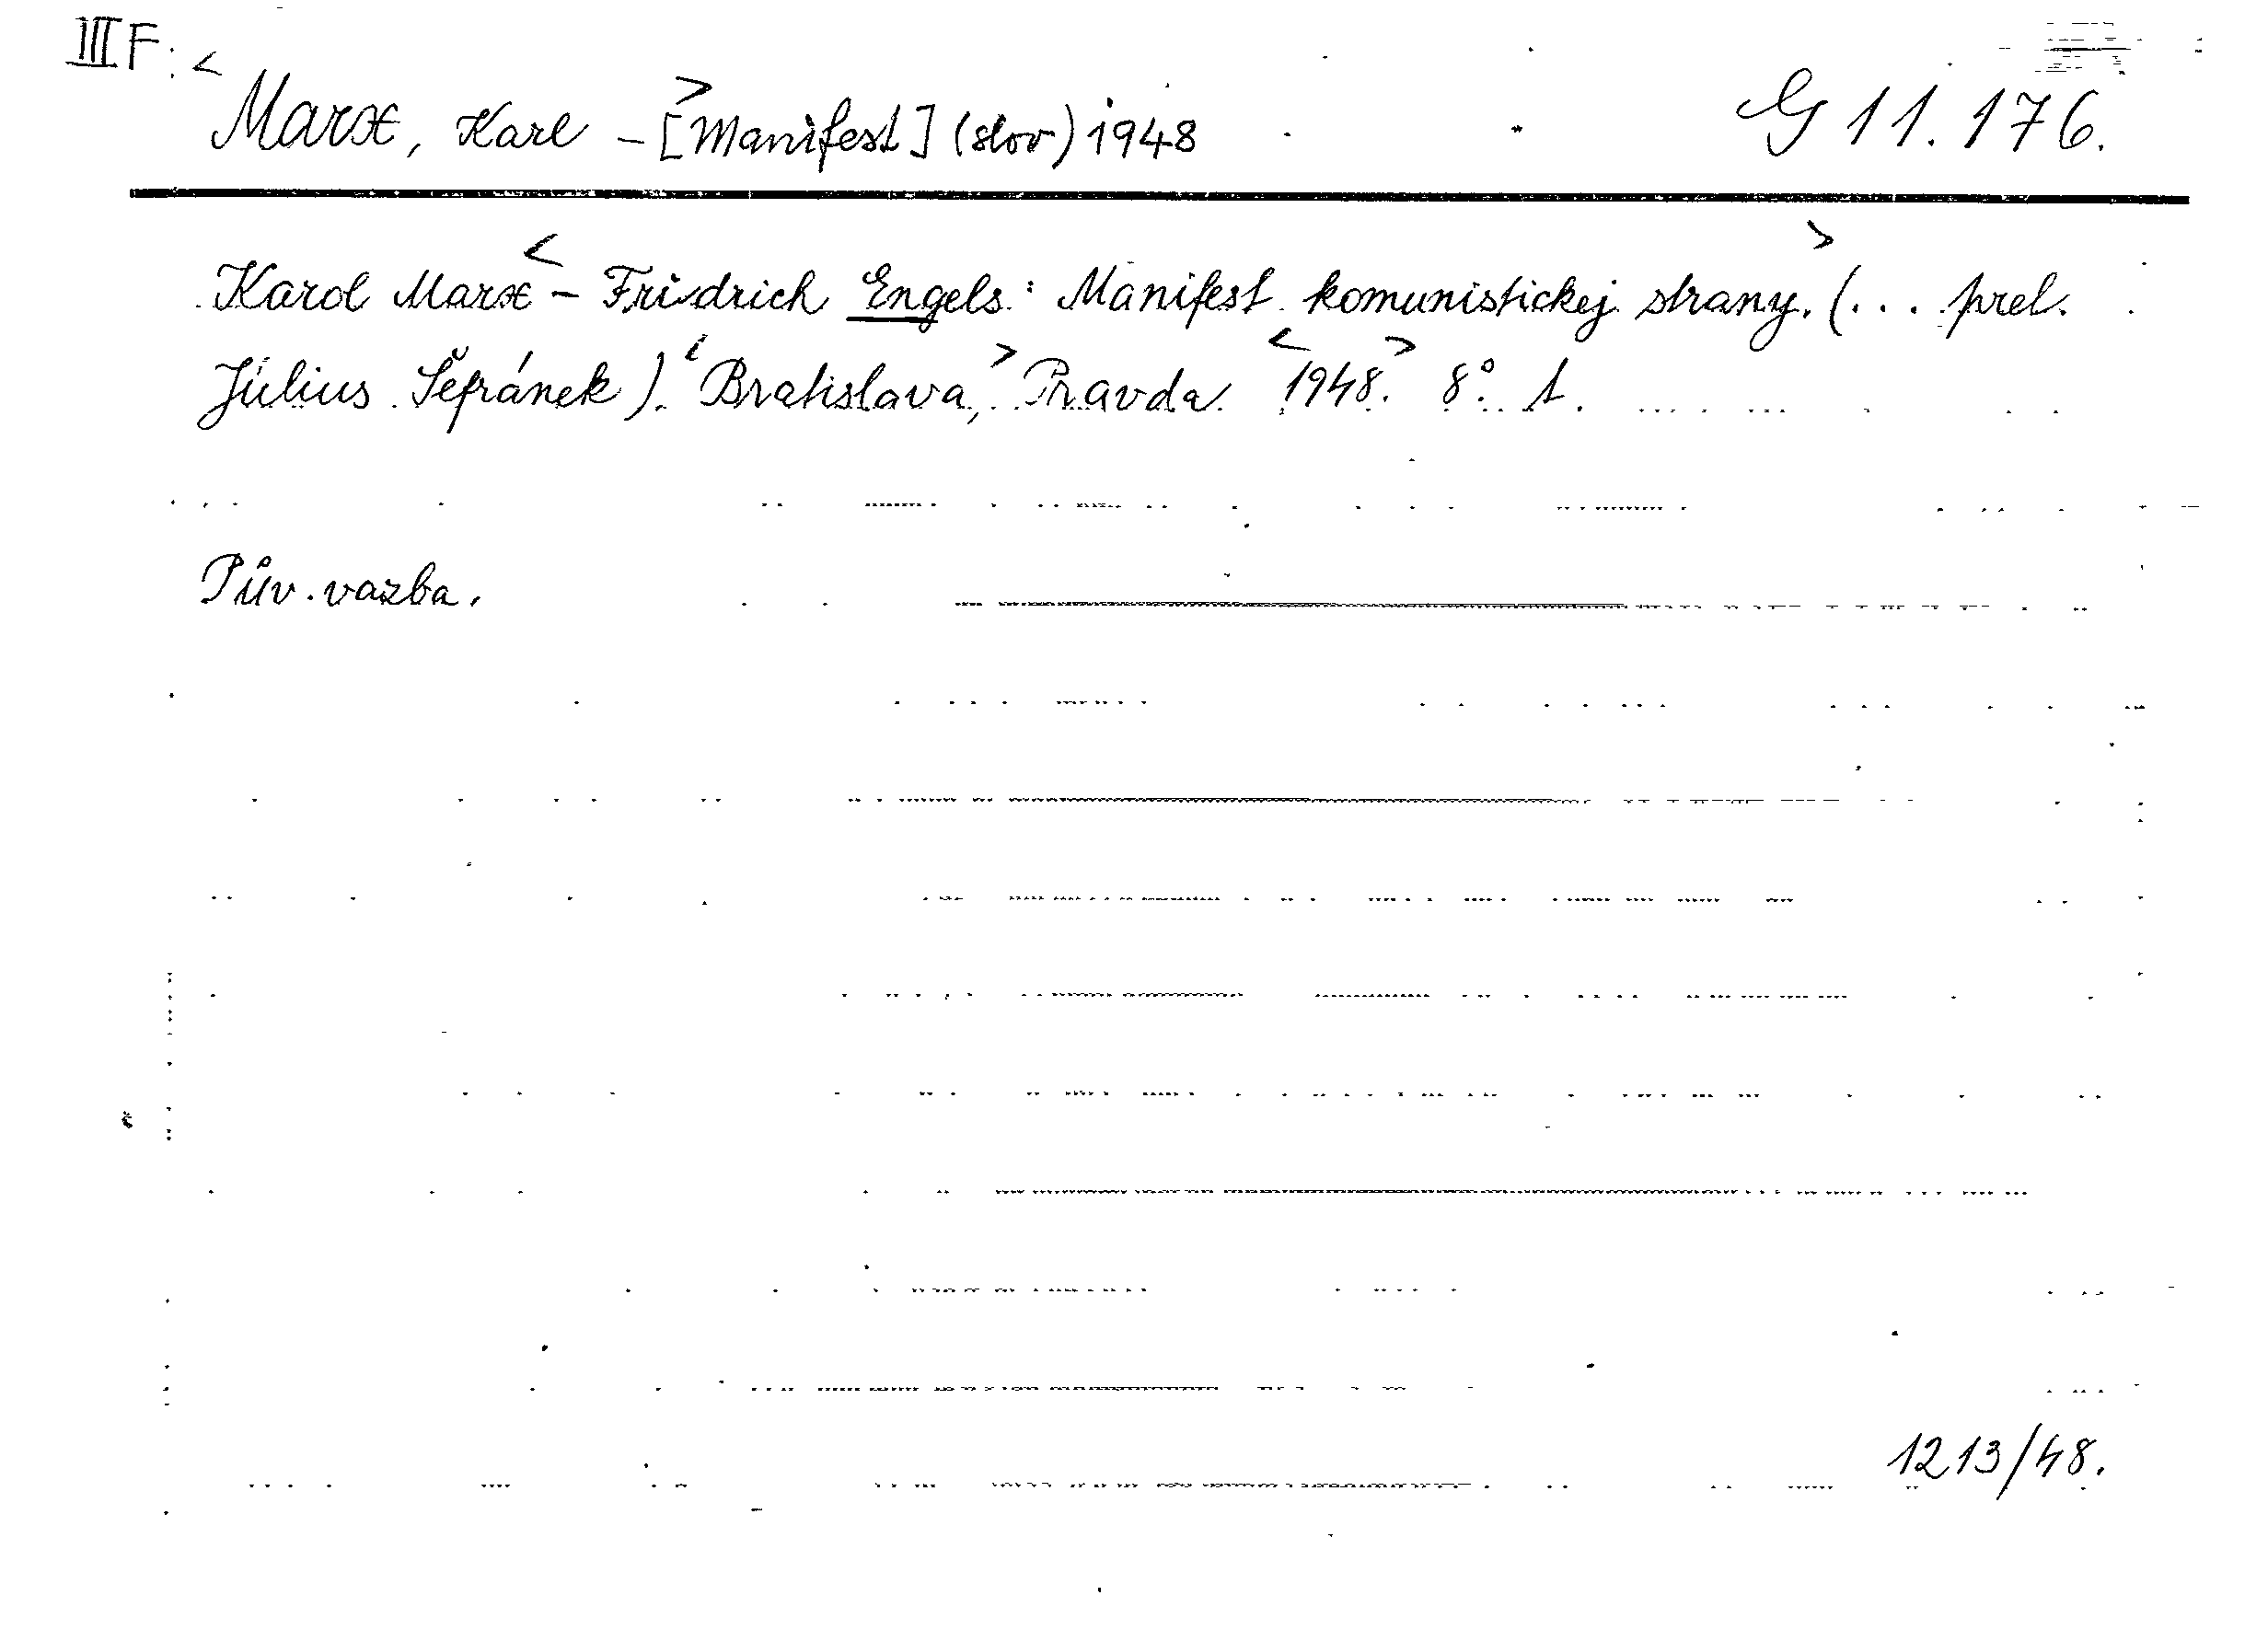 III F: <
Marx, Karl > - [Manifest] (slov) 1948 G 11.176.
Karol Marx < - Fridrich Engels: Manifest komunistickej strany. > (... prel.
Július Šefránek). < Bratislava, > Pravda < 1948. > 8°. 1.
Pův. vazba.
1213/48.